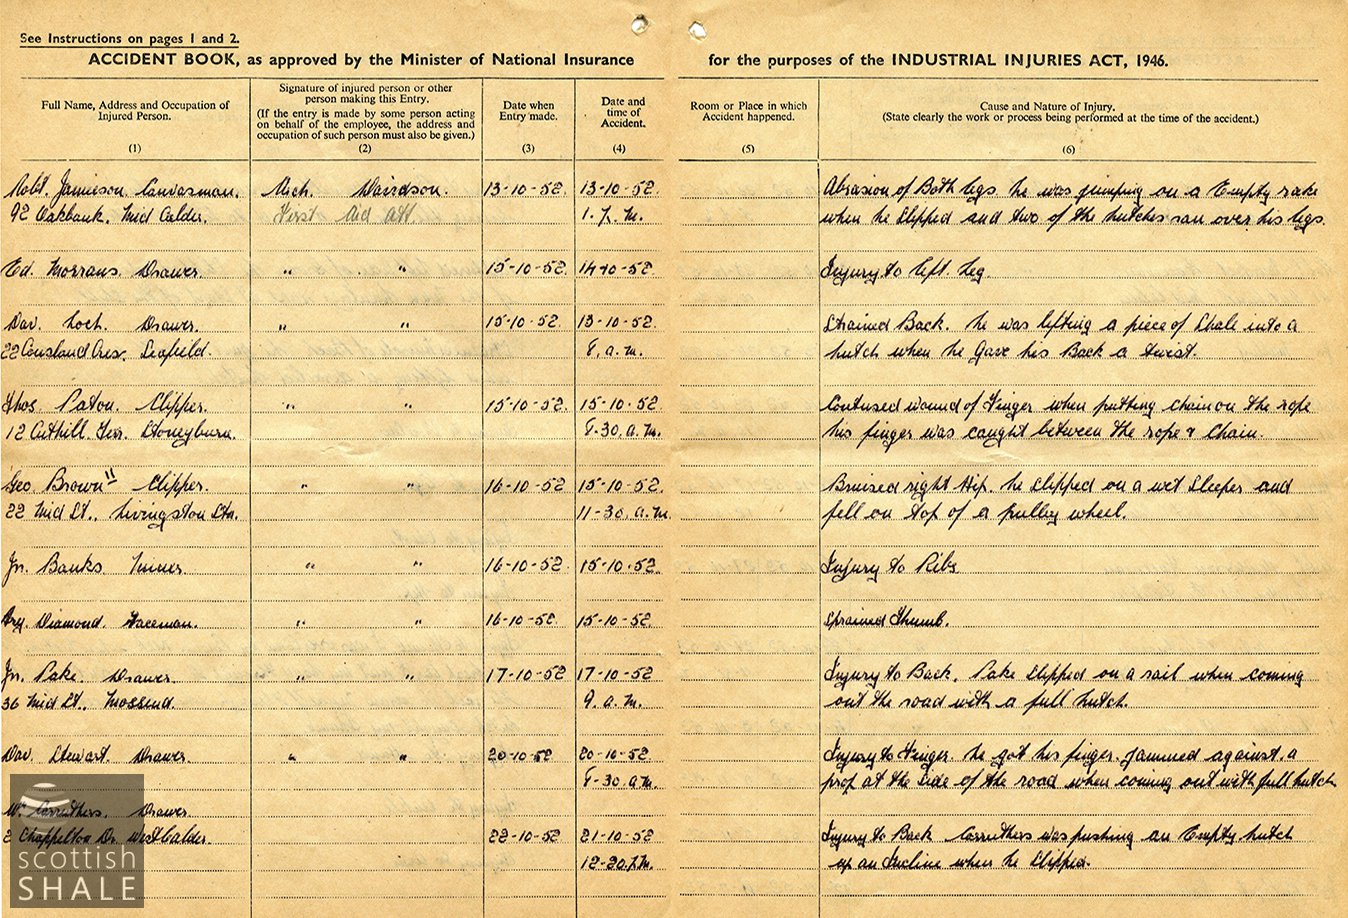 See Instructions on pages 1 and 2.
ACCIDENT BOOK, as approved by the Minister of National Insurance for the purposes of the INDUSTRIAL INJURIES ACT, 1946.
Full Name, Address and Occupation of Injured Person.
(1)
Signature of injured person or other person making this Entry.
(If the entry is made by some person acting on behalf of the employee, the address and occupation of such person must also be given.)
(2)
Date when Entry made.
(3)
Date and time of Accident.
(4)
Room or Place in which Accident happened.
(5)
Cause and Nature of Injury.
(State clearly the work or process being performed at the time of the accident.)
(6)
Robt. Jamieson. Canvasman. Mich. Davidson. 13-10-52 13-10-52. Abrasion of Both legs. he was jumping on a Empty rake
92 Oakbank. Mid Calder. First Aid Att 1. p.m. when he slipped and two of the hutches ran over his legs.
Ed. Morrans. Drawer. " " 15-10-52. 14-10-52. Injury to left Leg.
Dav. Loch. Drawer. " " 15-10-52. 13-10-52. Strained Back. he was lifting a piece of Shale into a
22 Cousland Cres. Seafield. 8. a.m. hutch when he gave his Back a twist.
Thos. Paton. Clipper. " " 15-10-52. 15-10-52 Contused wound of Finger when putting chain on the rope
12 Cuthill Terr. Stoneyburn. 8-30. a.m. his finger was caught between the rope & chain.
Geo. Brown II Clipper. " " 16-10-52 15-10-52. Bruised right Hip. he slipped on a wet Sleeper and
22 Mid St., Livingston Stn. 11-30. a.m. fell on top of a pulley wheel.
Jn. Banks Miner. " " 16-10-52. 15-10-52. Injury to Ribs
Hry. Diamond. Faceman. " " 16-10-52. 15-10-52. Sprained Thumb.
Jn. Pake. Drawer. " " 17-10-52 17-10-52 Injury to Back. Pake slipped on a rail when coming
36 Mid St., Mossend. 9. a.m. out the road with a full hutch.
Dav. Stewart. Drawer " " 20-10-52 20-10-52 Injury to Finger. he got his finger jammed against a
8-30. a.m. prop at the side of the road when coming out with full hutch
Wm. Carruthers. Drawer
2 Chappelton Dr. West Calder. 22-10-52 21-10-52 Injury to Back Carruthers was pushing an Empty hutch
12-20. p.m. up an Incline when he slipped.
scottish
SHALE